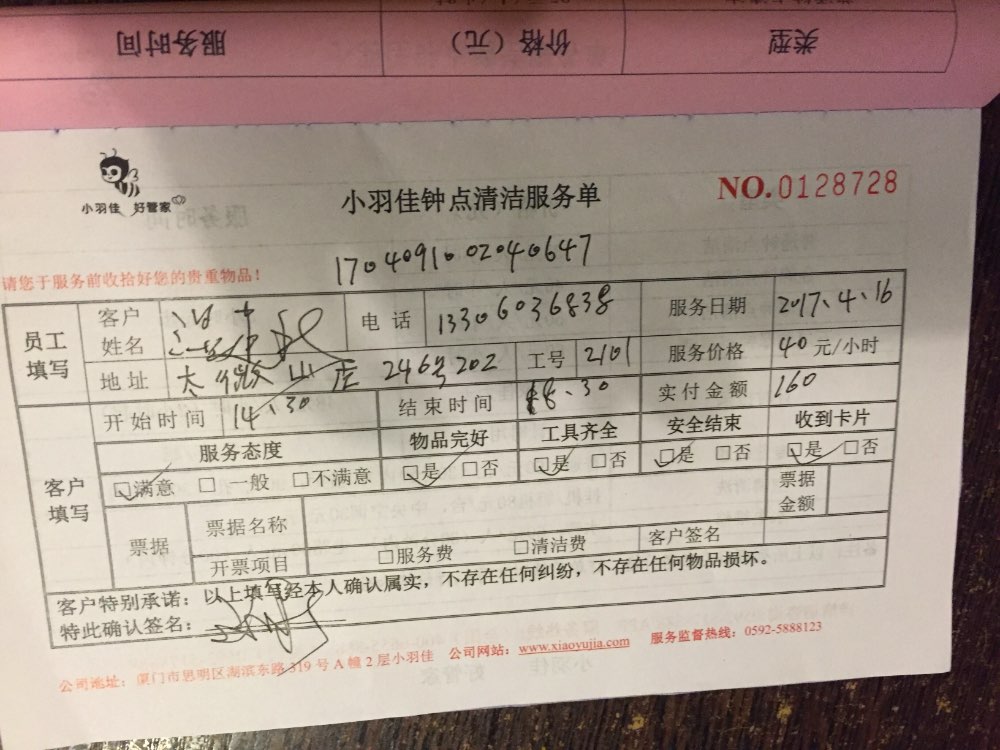 服务时间 价格（元） 类型
小羽佳 好管家
小羽佳钟点清洁服务单
NO.0128728
1704091002040647
请您于服务前收拾好您的贵重物品！
员工填写
客户姓名 电话 13306036838 服务日期 2017、4、16
地址 山庄246号202 工号 2101 服务价格 40元/小时
开始时间 14、30 结束时间 18、30 实付金额 160
客户填写
服务态度 物品完好 工具齐全 安全结束 收到卡片
□满意 □一般 □不满意 □是 □否 □是 □否 □是 □否 □是 □否
票据 票据名称 票据金额
开票项目 □服务费 □清洁费 客户签名
客户特别承诺：以上填写经本人确认属实，不存在任何纠纷，不存在任何物品损坏。
特此确认签名：
公司地址：厦门市思明区湖滨东路319号A幢2层小羽佳 公司网站：www.xiaoyujia.com 服务监督热线：0592-5888123